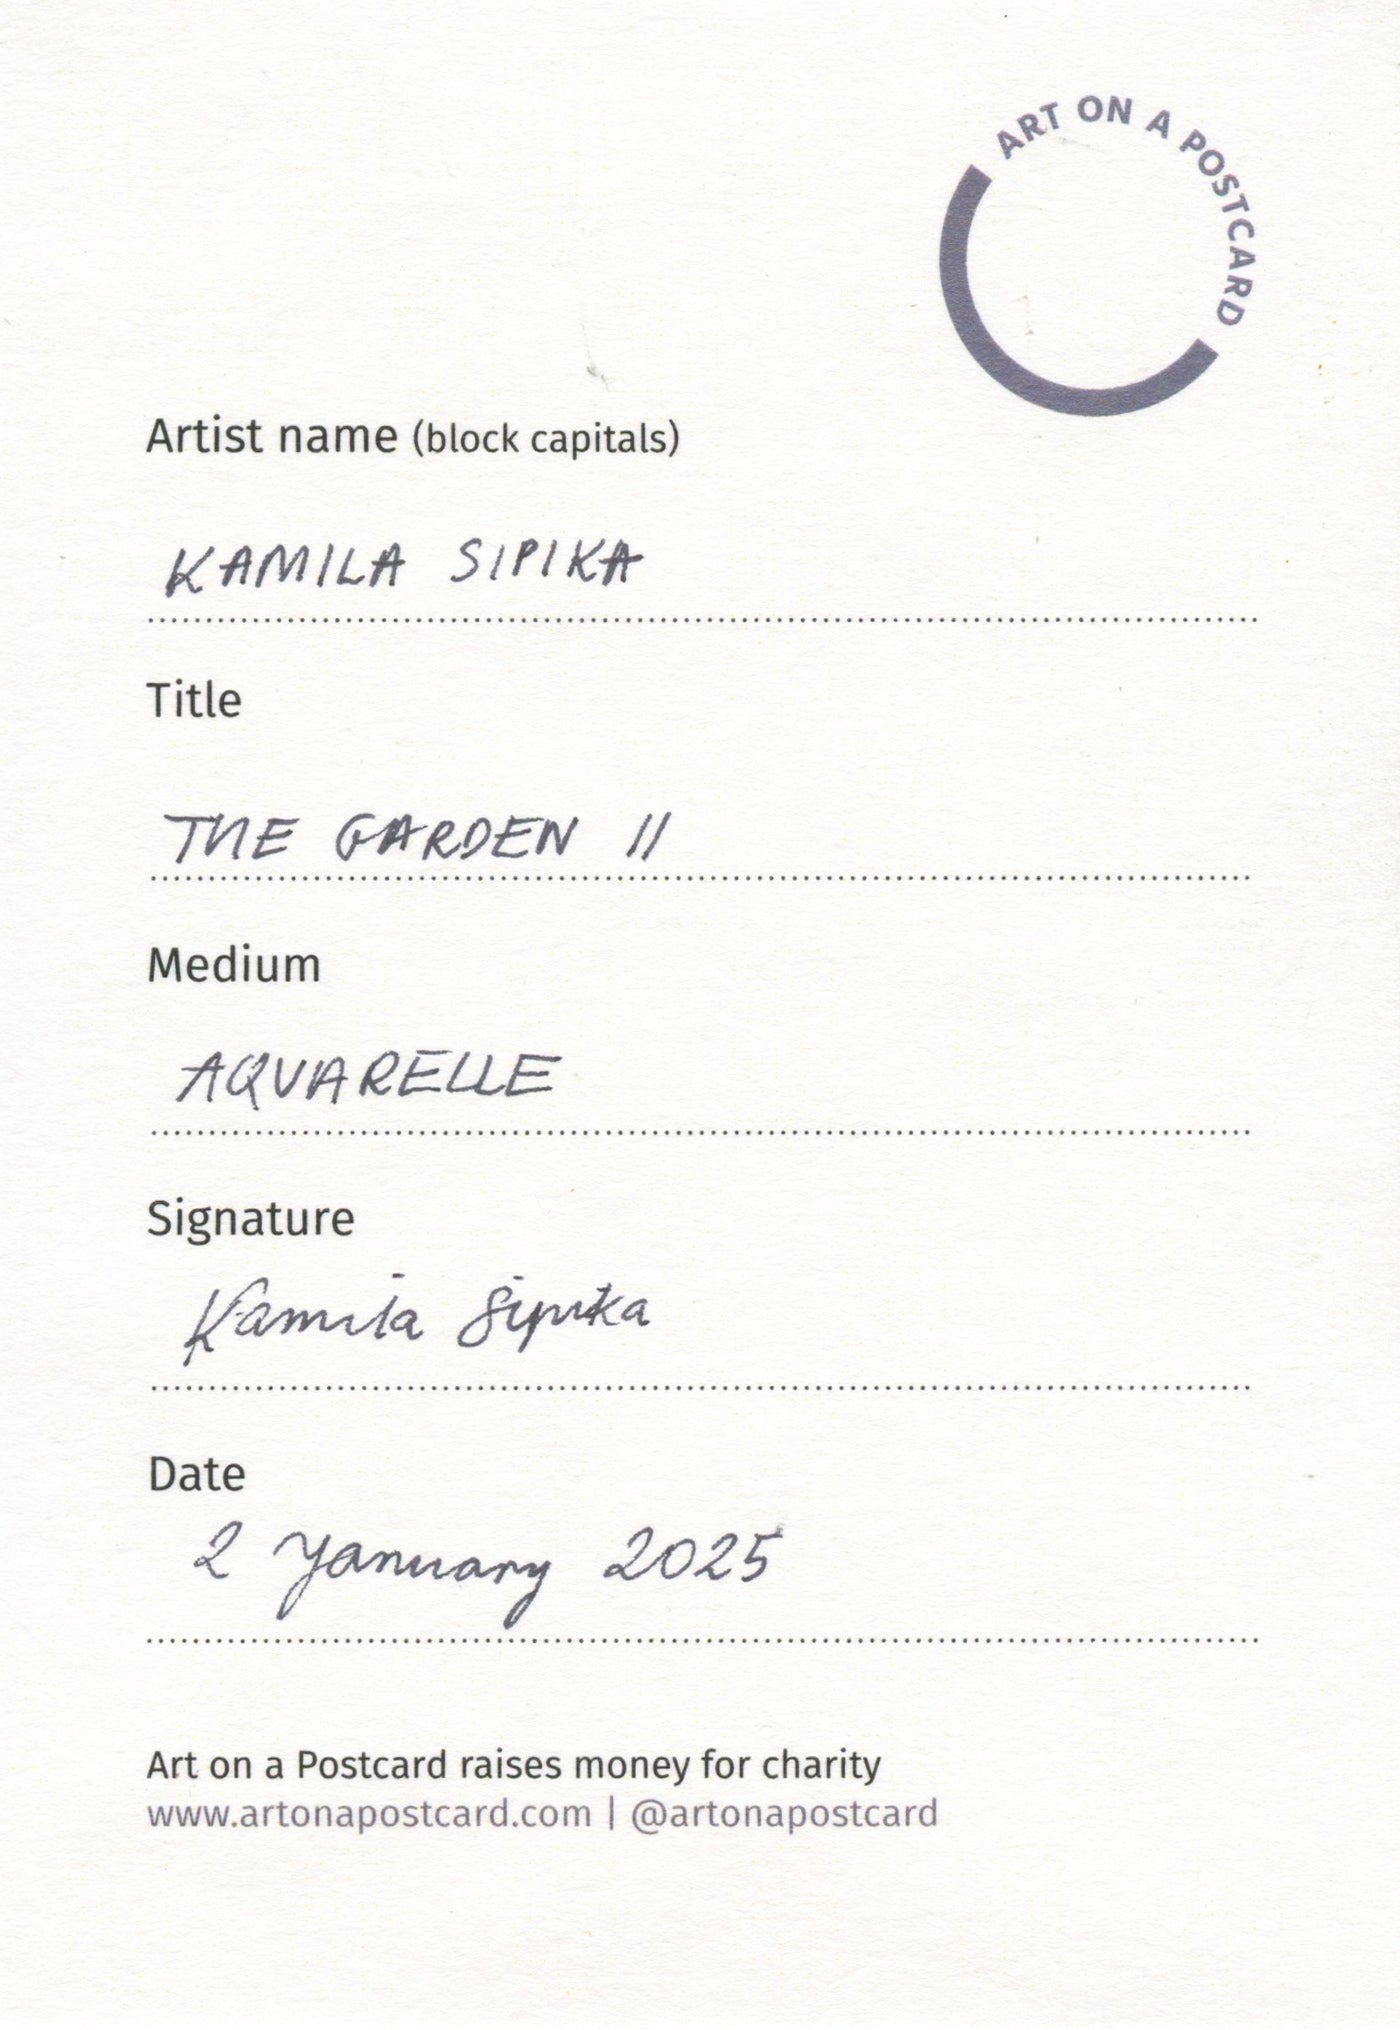 ART ON A POSTCARD
Artist name (block capitals)
KAMILA SIPIKA
Title
THE GARDEN II
Medium
AQUARELLE
Signature
Kamila Sipika
Date
2 Yanuary 2025
Art on a Postcard raises money for charity
www.artonapostcard.com | @artonapostcard